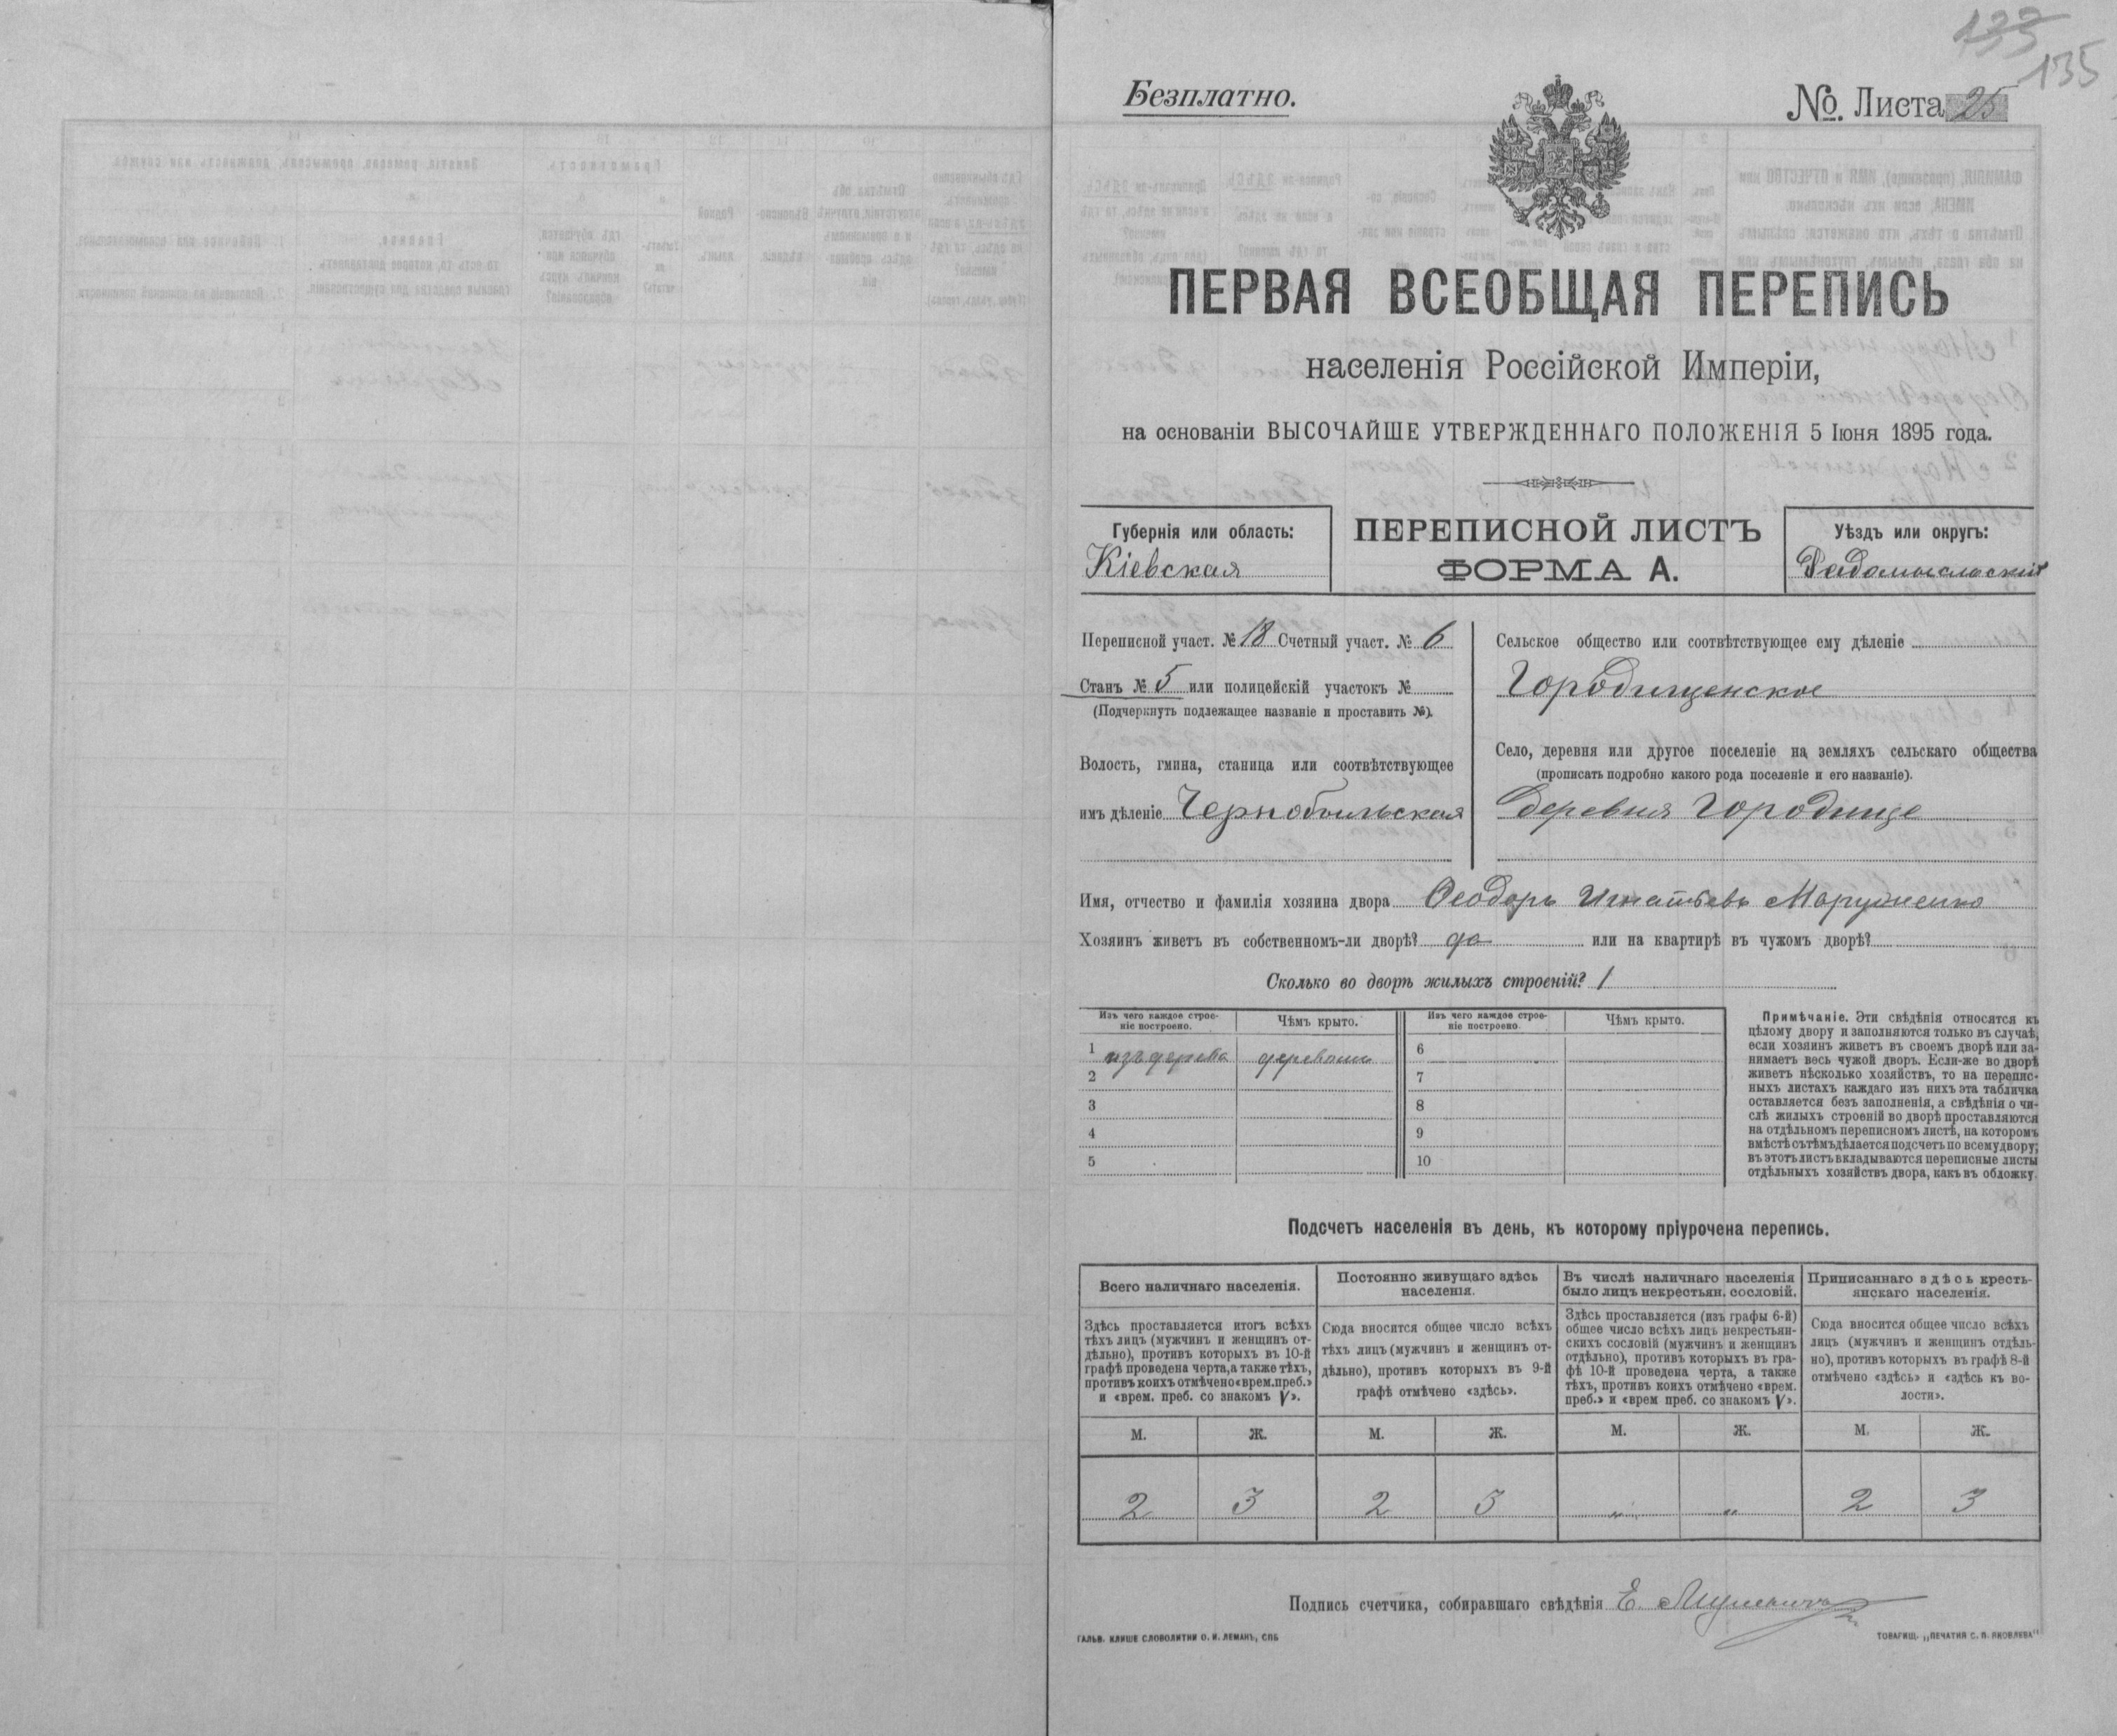 133
135
Безплатно.
№. Листа 25
ПЕРВАЯ ВСЕОБЩАЯ ПЕРЕПИСЬ
населенія Россійской Имперіи,
на основаніи ВЫСОЧАЙШЕ УТВЕРЖДЕННАГО ПОЛОЖЕНІЯ 5 Іюня 1895 года.
Губернія или область:
Кіевская
ПЕРЕПИСНОЙ ЛИСТЪ
ФОРМА А.
Уѣздъ или округъ:
Радомысльскій
Переписной участ. № 18 Счетный участ. № 6
Станъ № 5 или полицейскій участокъ №
(Подчеркнуть подлежащее названіе и проставить №).
Волость, гмина, станица или соотвѣтствующее
имъ дѣленіе Чернобыльская
Сельское общество или соотвѣтствующее ему дѣленіе
Городищенское
Село, деревня или другое поселеніе на земляхъ сельскаго общества
(прописать подробно какого рода поселеніе и его названіе).
Деревня Городище
Имя, отчество и фамилія хозяина двора Ѳеодоръ Игнатьевъ
Хозяинъ живетъ въ собственномъ-ли дворѣ? да или на квартирѣ въ чужомъ дворѣ?
Сколько во дворѣ жилыхъ строеній? 1
Изъ чего каждое строе-
ніе построено.
Чѣмъ крыто.
Изъ чего каждое строе-
ніе построено.
Чѣмъ крыто.
1 изъ дерева деревомъ 6
2 7
3 8
4 9
5 10
Примѣчаніе. Эти свѣдѣнія относятся къ
цѣлому двору и заполняются только въ случаѣ,
если хозяинъ живетъ въ своемъ дворѣ или за-
нимаетъ весь чужой дворъ. Если-же во дворѣ
живетъ нѣсколько хозяйствъ, то на перепис-
ныхъ листахъ каждаго изъ нихъ эта табличка
оставляется безъ заполненія, а свѣдѣнія о чи-
слѣ жилыхъ строеній во дворѣ проставляются
на отдѣльномъ переписномъ листѣ, на которомъ
вмѣстѣ съ тѣмъ дѣлается подсчетъ по всему двору;
въ этотъ листъ вкладываются переписные листы
отдѣльныхъ хозяйствъ двора, какъ въ обложку.
Подсчетъ населенія въ день, къ которому пріурочена перепись.
Всего наличнаго населенія.
Здѣсь проставляется итогъ всѣхъ
тѣхъ лицъ (мужчинъ и женщинъ от-
дѣльно), противъ которыхъ въ 10-й
графѣ проведена черта, а также тѣхъ,
противъ коихъ отмѣчено «врем. преб.»
и «врем. преб. со знакомъ V».
Постоянно живущаго здѣсь
населенія.
Сюда вносится общее число всѣхъ
тѣхъ лицъ (мужчинъ и женщинъ от-
дѣльно), противъ которыхъ въ 9-й
графѣ отмѣчено «здѣсь».
Въ числѣ наличнаго населенія
было лицъ некрестьян. сословій.
Здѣсь проставляется (изъ графы 6-й)
общее число всѣхъ лицъ некрестьян-
скихъ сословій (мужчинъ и женщинъ
отдѣльно), противъ которыхъ въ гра-
фѣ 10-й проведена черта, а также
тѣхъ, противъ коихъ отмѣчено «врем.
преб.» и «врем преб. со знакомъ V».
Приписаннаго здѣсь кресть-
янскаго населенія.
Сюда вносится общее число всѣхъ
лицъ (мужчинъ и женщинъ отдѣль-
но), противъ которыхъ въ графѣ 8-й
отмѣчено «здѣсь» и «здѣсь къ во-
лости».
М. Ж. М. Ж. М. Ж. М. Ж.
2 3 2 3 „ „ 2 3
Подпись счетчика, собиравшаго свѣдѣнія Е.
ГАЛЬВ. КЛИШЕ СЛОВОЛИТНИ О. И. ЛЕМАНЪ, СПБ
ТОВАРИЩ. „ПЕЧАТНЯ С. П. ЯКОВЛЕВА"